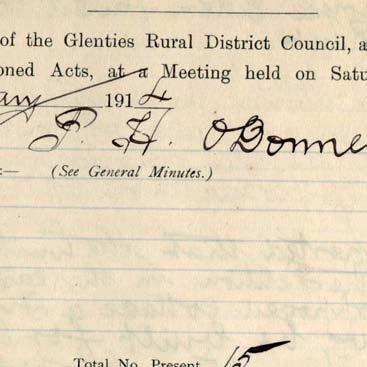 of the Glenties Rural District Council, a
oned Acts, at a Meeting held on Satu
ary 1914
P. H. O'Donne
:— (See General Minutes.)
Total No. Present 15